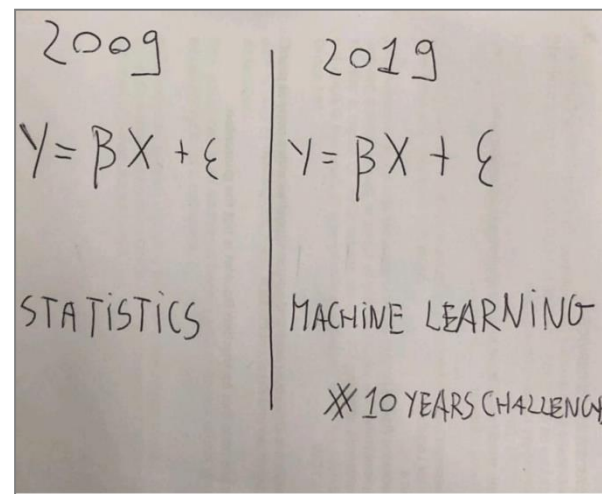 2009
Y = βX + ε
STATISTICS
2019
Y = βX + ε
MACHINE LEARNING
# 10 YEARS CHALLENG